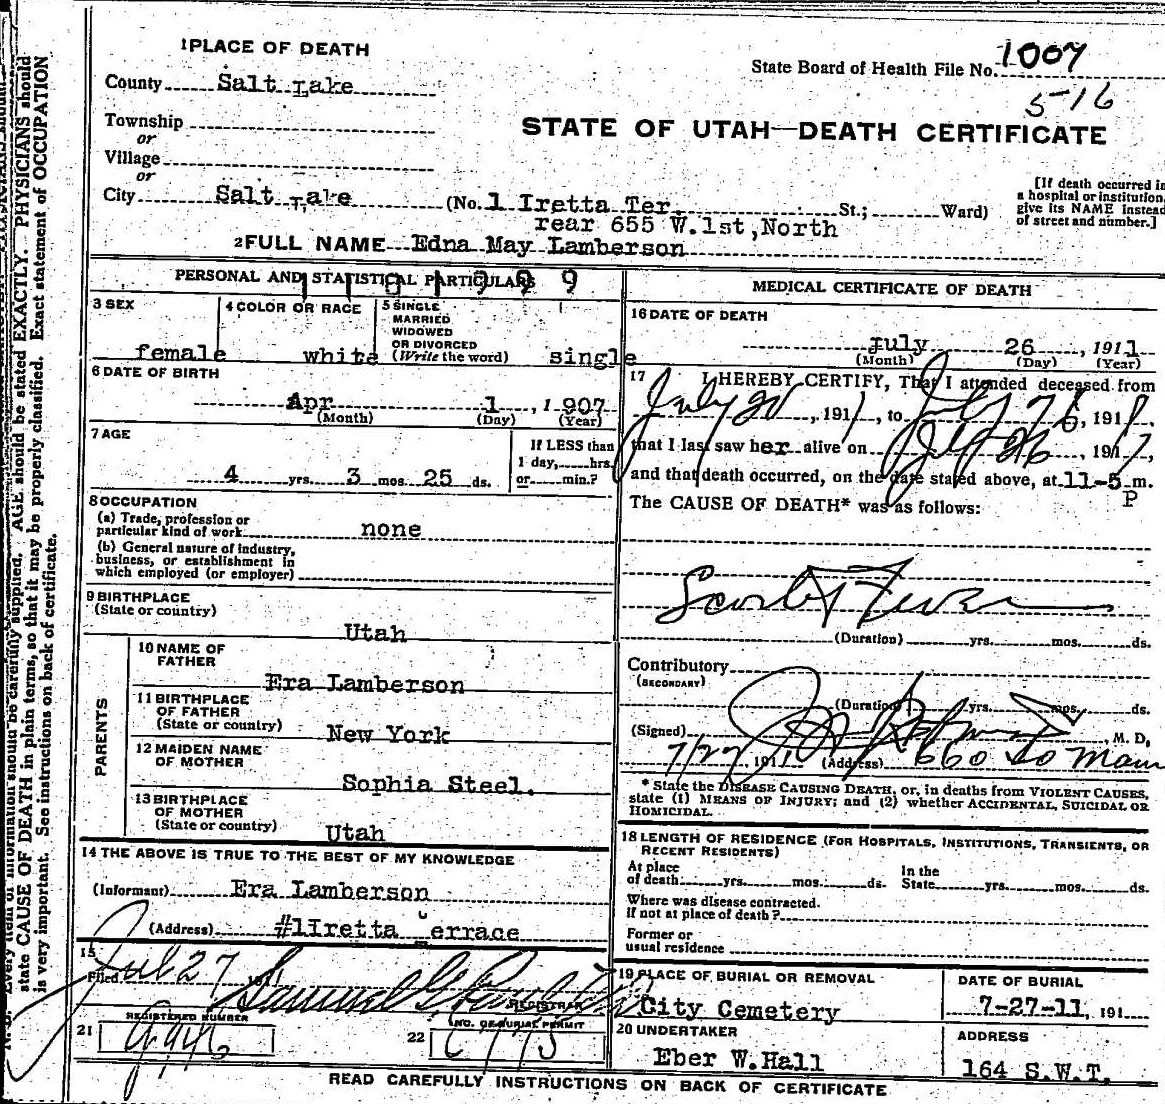 1 PLACE OF DEATH
County Salt Lake
Township
or
Village
or
City Salt Lake (No. 1 Iretta Ter. St.; Ward)
rear 655 W.1st, North
State Board of Health File No. 1007
5-16
STATE OF UTAH—DEATH CERTIFICATE
[If death occurred in
a hospital or institution,
give its NAME instead
of street and number.]
2 FULL NAME Edna May Lamberson
PERSONAL AND STATISTICAL PARTICULARS
3 SEX
female
4 COLOR OR RACE
white
5 SINGLE
MARRIED
WIDOWED
OR DIVORCED
(Write the word) single
6 DATE OF BIRTH
Apr 1, 1907
(Month) (Day) (Year)
7 AGE
4 yrs. 3 mos. 25 ds.
If LESS than
1 day, hrs.
or min.?
8 OCCUPATION
(a) Trade, profession or
particular kind of work none
(b) General nature of industry,
business, or establishment in
which employed (or employer)
9 BIRTHPLACE
(State or country)
Utah
PARENTS
10 NAME OF
FATHER
Era Lamberson
11 BIRTHPLACE
OF FATHER
(State or country) New York
12 MAIDEN NAME
OF MOTHER
Sophia Steel.
13 BIRTHPLACE
OF MOTHER
(State or country) Utah
14 THE ABOVE IS TRUE TO THE BEST OF MY KNOWLEDGE
(Informant) Era Lamberson
(Address) #1Iretta Terrace
15
Filed Jul 27 191
Samuel G.
REGISTRAR
REGISTERED NUMBER
21
NO. OF BURIAL PERMIT
22
MEDICAL CERTIFICATE OF DEATH
16 DATE OF DEATH
July 26, 1911
(Month) (Day) (Year)
17 I HEREBY CERTIFY, That I attended deceased from
July 20, 1911, to July 26, 1911,
that I last saw her alive on July 26, 1911,
and that death occurred, on the date stated above, at 11-5 m.
P
The CAUSE OF DEATH* was as follows:
Scarlet Fever
(Duration) yrs. mos. ds.
Contributory
(SECONDARY)
(Duration) yrs. mos. ds.
(Signed) M. D.
7/27, 1911 (Address) 660 So Main
* State the DISEASE CAUSING DEATH, or, in deaths from VIOLENT CAUSES,
state (1) MEANS OF INJURY; and (2) whether ACCIDENTAL, SUICIDAL OR
HOMICIDAL.
18 LENGTH OF RESIDENCE (FOR HOSPITALS, INSTITUTIONS, TRANSIENTS, OR
RECENT RESIDENTS)
At place
of death yrs. mos. ds.
In the
State yrs. mos. ds.
Where was disease contracted,
if not at place of death?
Former or
usual residence
19 PLACE OF BURIAL OR REMOVAL
City Cemetery
DATE OF BURIAL
7-27-11, 191
20 UNDERTAKER
Eber W.Hall
ADDRESS
164 S.W.T.
READ CAREFULLY INSTRUCTIONS ON BACK OF CERTIFICATE
N. B. Every item of information should be carefully supplied. AGE should be stated EXACTLY. PHYSICIANS should
state CAUSE OF DEATH in plain terms, so that it may be properly classified. Exact statement of OCCUPATION
is very important. See instructions on back of certificate.